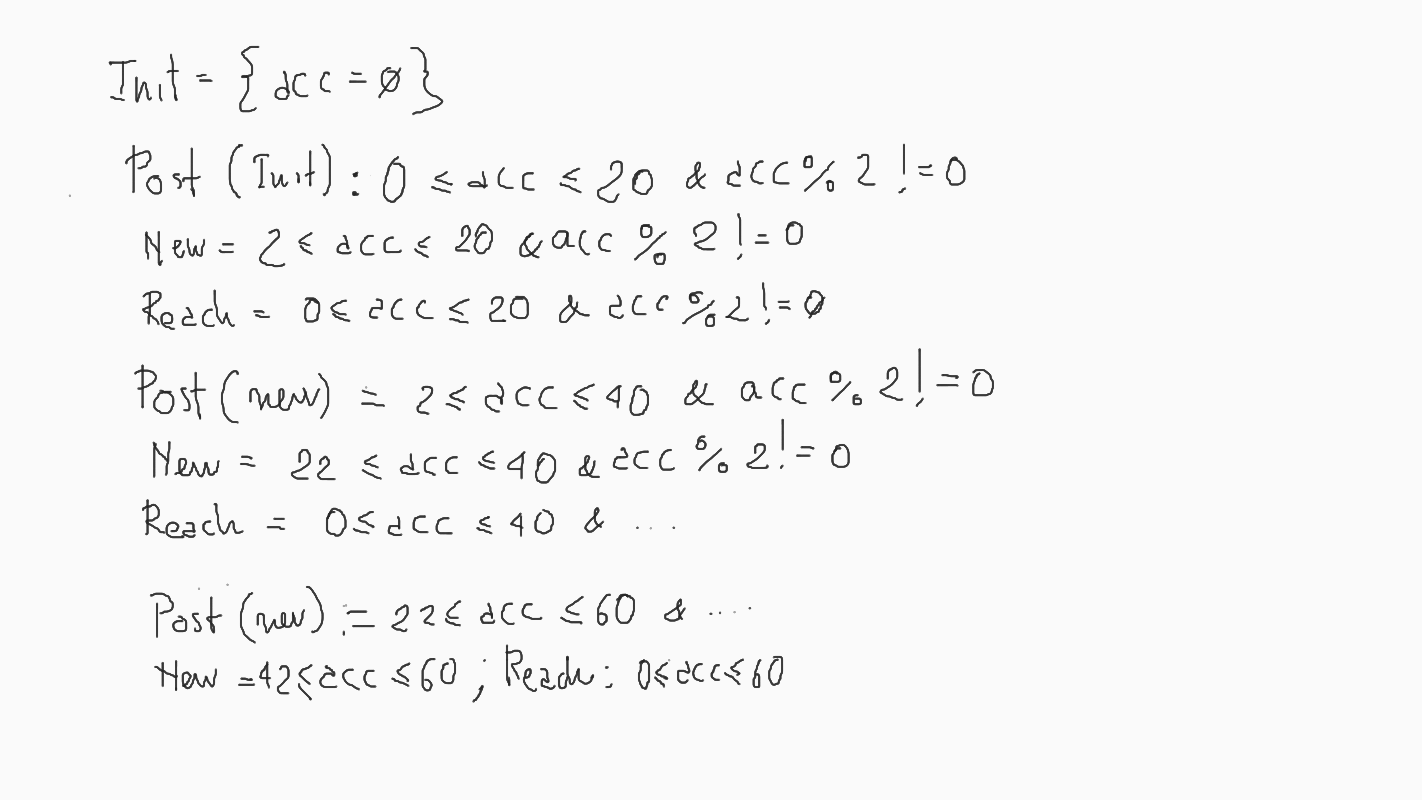 Init = { acc = 0 }
Post (Init) : 0 ≤ acc ≤ 20 & acc % 2 != 0
New = 2 ≤ acc ≤ 20 & acc % 2 != 0
Reach = 0 ≤ acc ≤ 20 & acc % 2 != 0
Post (new) = 2 ≤ acc ≤ 40 & acc % 2 != 0
New = 22 ≤ acc ≤ 40 & acc % 2 != 0
Reach = 0 ≤ acc ≤ 40 & ...
Post (new) := 22 ≤ acc ≤ 60 & ....
New = 42 ≤ acc ≤ 60 ; Reach : 0 ≤ acc ≤ 60